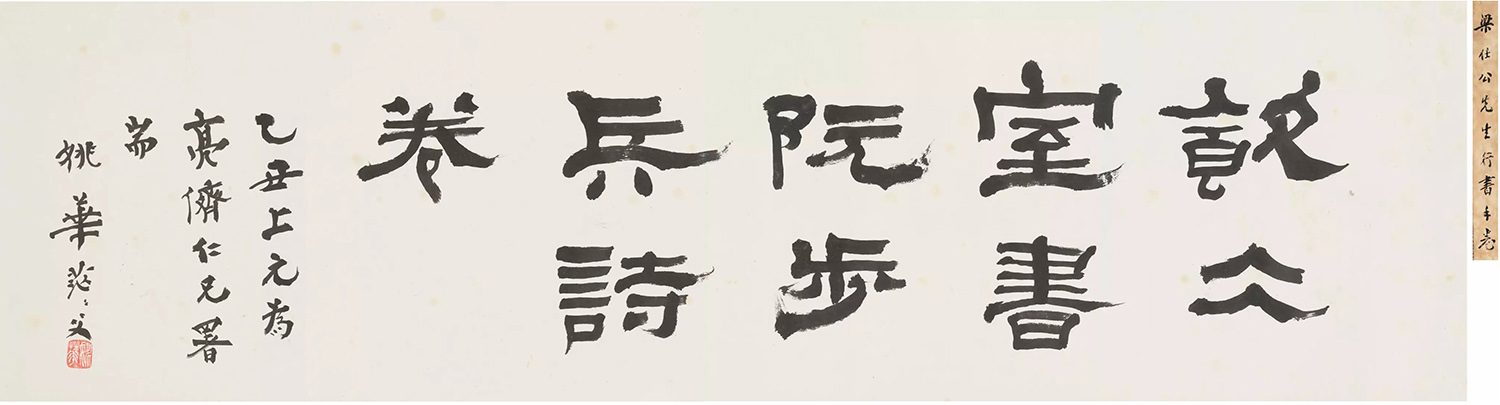 梁任公先生行書手卷
㱃仌
室書
阮步
兵詩
卷
乙丑上元為
亮儕仁兄署
耑
姚華茫〻父